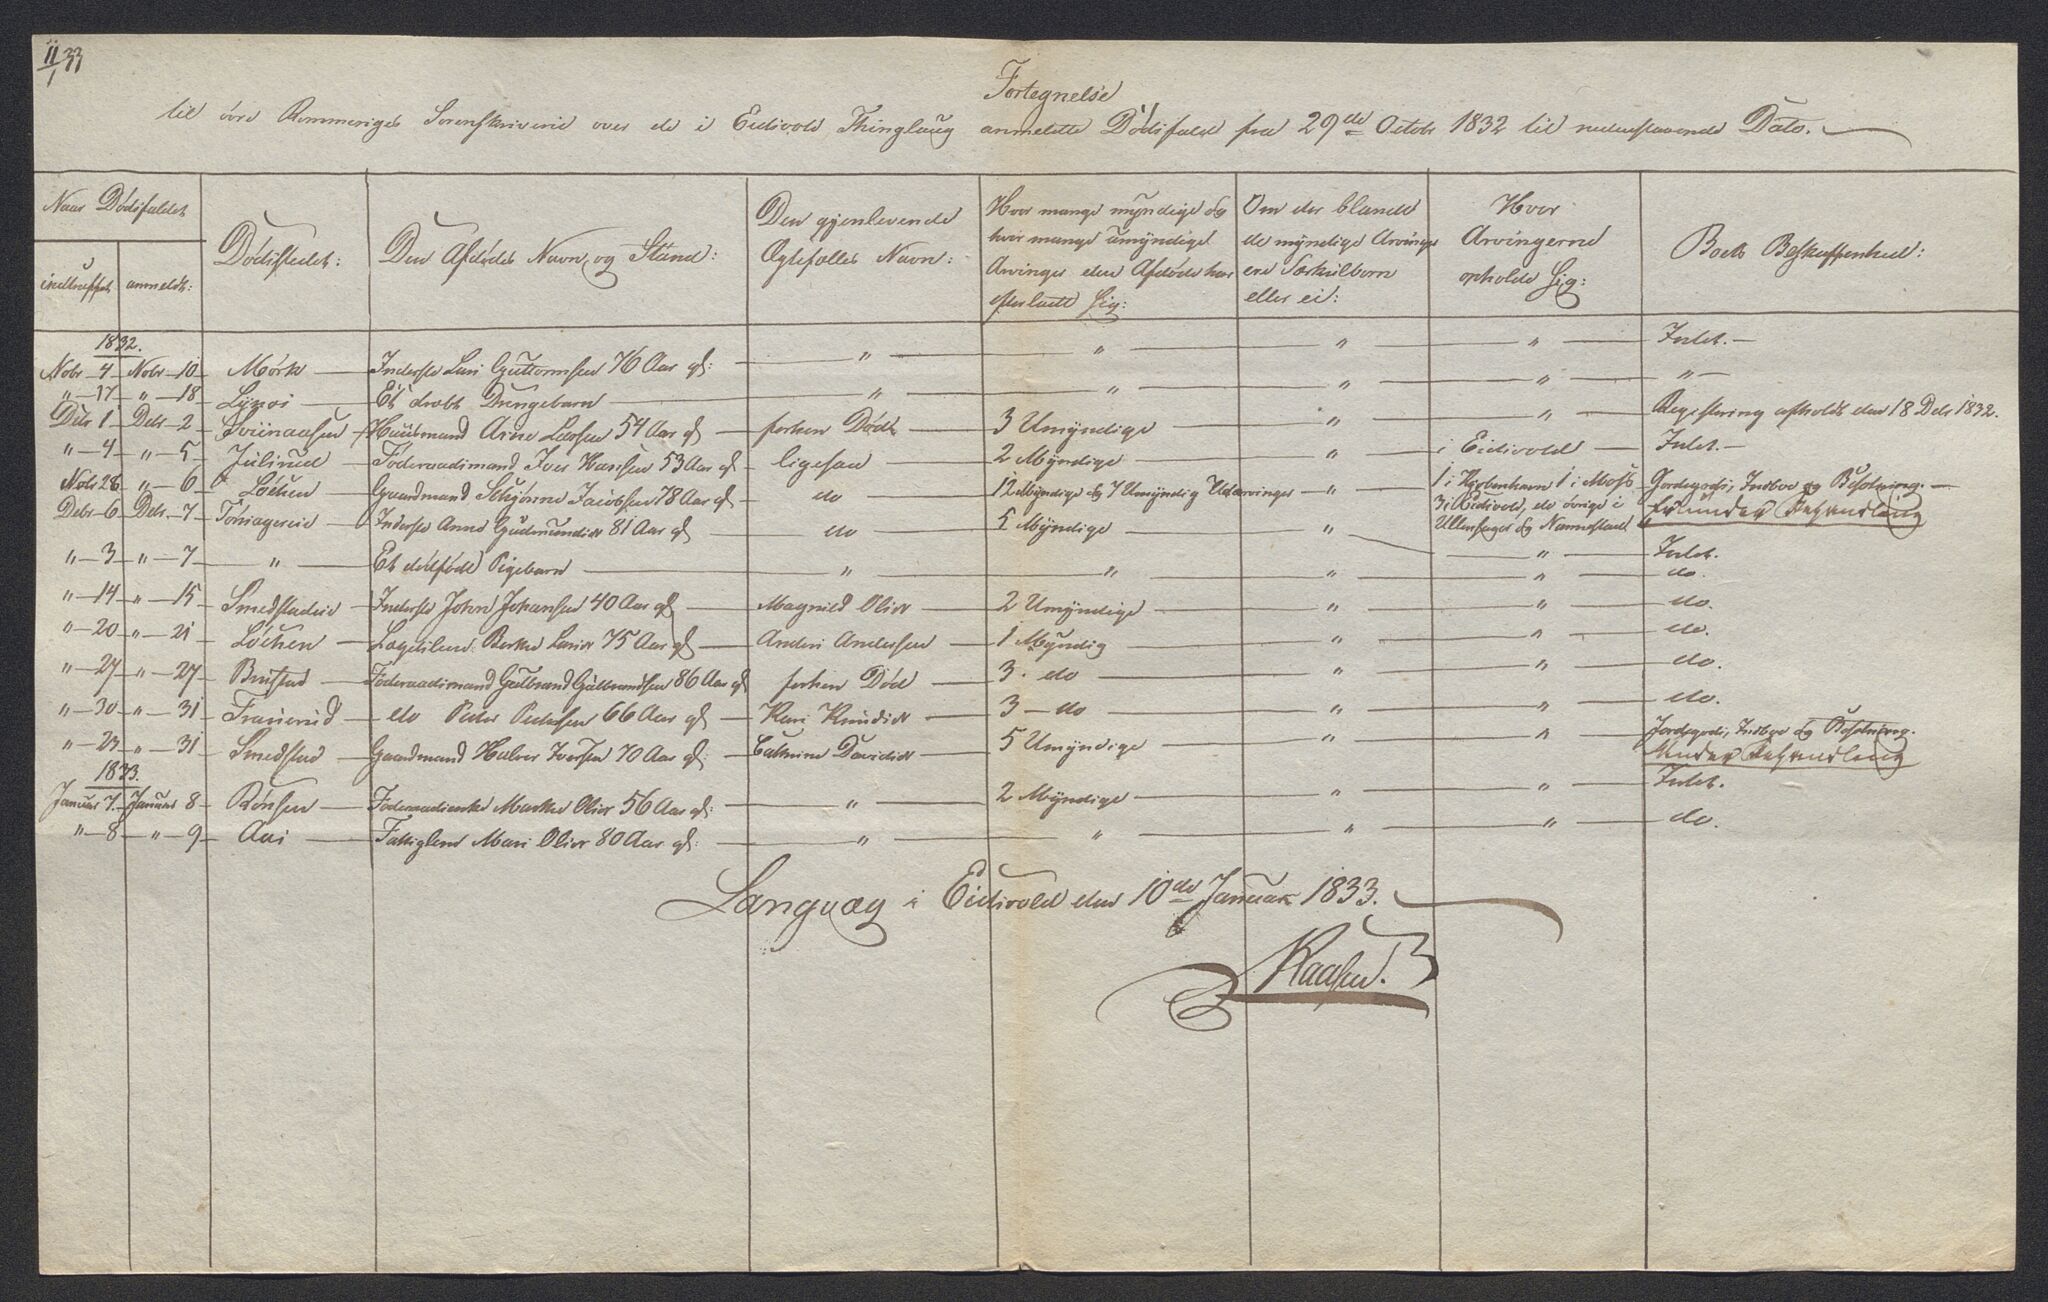 11/1 33
Fortegnelse
til övre Rommeriges Sorenskriverie over de i Eidsvold Thinglaug anmeldte Dödsfald fra 29de Octobr 1832 til nedenstaaende Dato.
Naar Dödsfaldet
indtruffet anmeldt:
Dödsstedet:
Den Afdödes Navn og Stand:
Den gjenlevende
Ægtefælles Navn:
Hvor mange myndige og
hvor mange umyndige
Arvinger den Afdöde har
efterladt sig:
Om der blandt
de myndige Arvinger
ere Særkulborn
eller ei:
Hvor
Arvingerne
opholde sig:
Boets Beskaffenhed:
1832.
Nobr 4 Nobr 10 Mörk Inderste Lars Guttormsen 76 Aar gl: " " " " Intet.
" 17 " 18 Et dræbt Drengebarn " " " " "
Debr 1 Debr 2 Huusmand Arne Larsen 54 Aar gl forhen Död 3 Umyndige " " Registering afholdt den 18 Debr 1832.
" 4 " 5 Julsrud Föderaadsmand Iver Hansen 53 Aar gl ligesaa 2 Myndige " i Eidsvold Intet.
Nobr 26 " 6 Löchen Gaardmand Jacobsen 78 Aar gl do 12 Myndige og 7 Umyndig Udarvinger " 1 i Kjöbenhavn 1 i Moss Jordegods, Indboe og Besætning.
3 i Eidsvold, de övrige i
Ullensager og Nannestad Er under Behandling
Debr 6 Debr. 7 Inderste Anne Gudmundsdr 81 Aar gl do 5 Myndige " " Intet.
" 3 " 7 " Et dödfödt Pigebarn " " " " do.
" 14 " 15 Smedstadeie Inderste John Johansen 40 Aar gl Magnild Olsdr 2 Umyndige " " do.
" 20 " 21 Löchen Lægdslem Berthe Larsdr 75 Aar gl Anders Andersen 1 Myndig " " do.
" 27 " 27 Brustad Föderaadsmand Gulbrand Gulbrandsen 86 Aar gl forhen Död 3 do " " do.
" 30 " 31 do Peder Pedersen 66 Aar gl Kari Knudsdr 3 do " " do.
" 23 " 31 Smedstad Gaardmand Halvor Iversen 70 Aar gl. Cathrine Davidsdr 5 Umyndige " " Jordegods, Indboe og Besætning.
Under Behandling
1833.
Januar 7. Januar 8 Rönsen Föderaadsenke Marthe Olsdr 56 Aar gl: " 2 Myndige " " Intet.
" 8 " 9 Aas Fattiglem Mari Olsdr 80 Aar gl: " " " " do.
Langvæg i Eidsvold den 10de Januar 1833.
Kaasen.